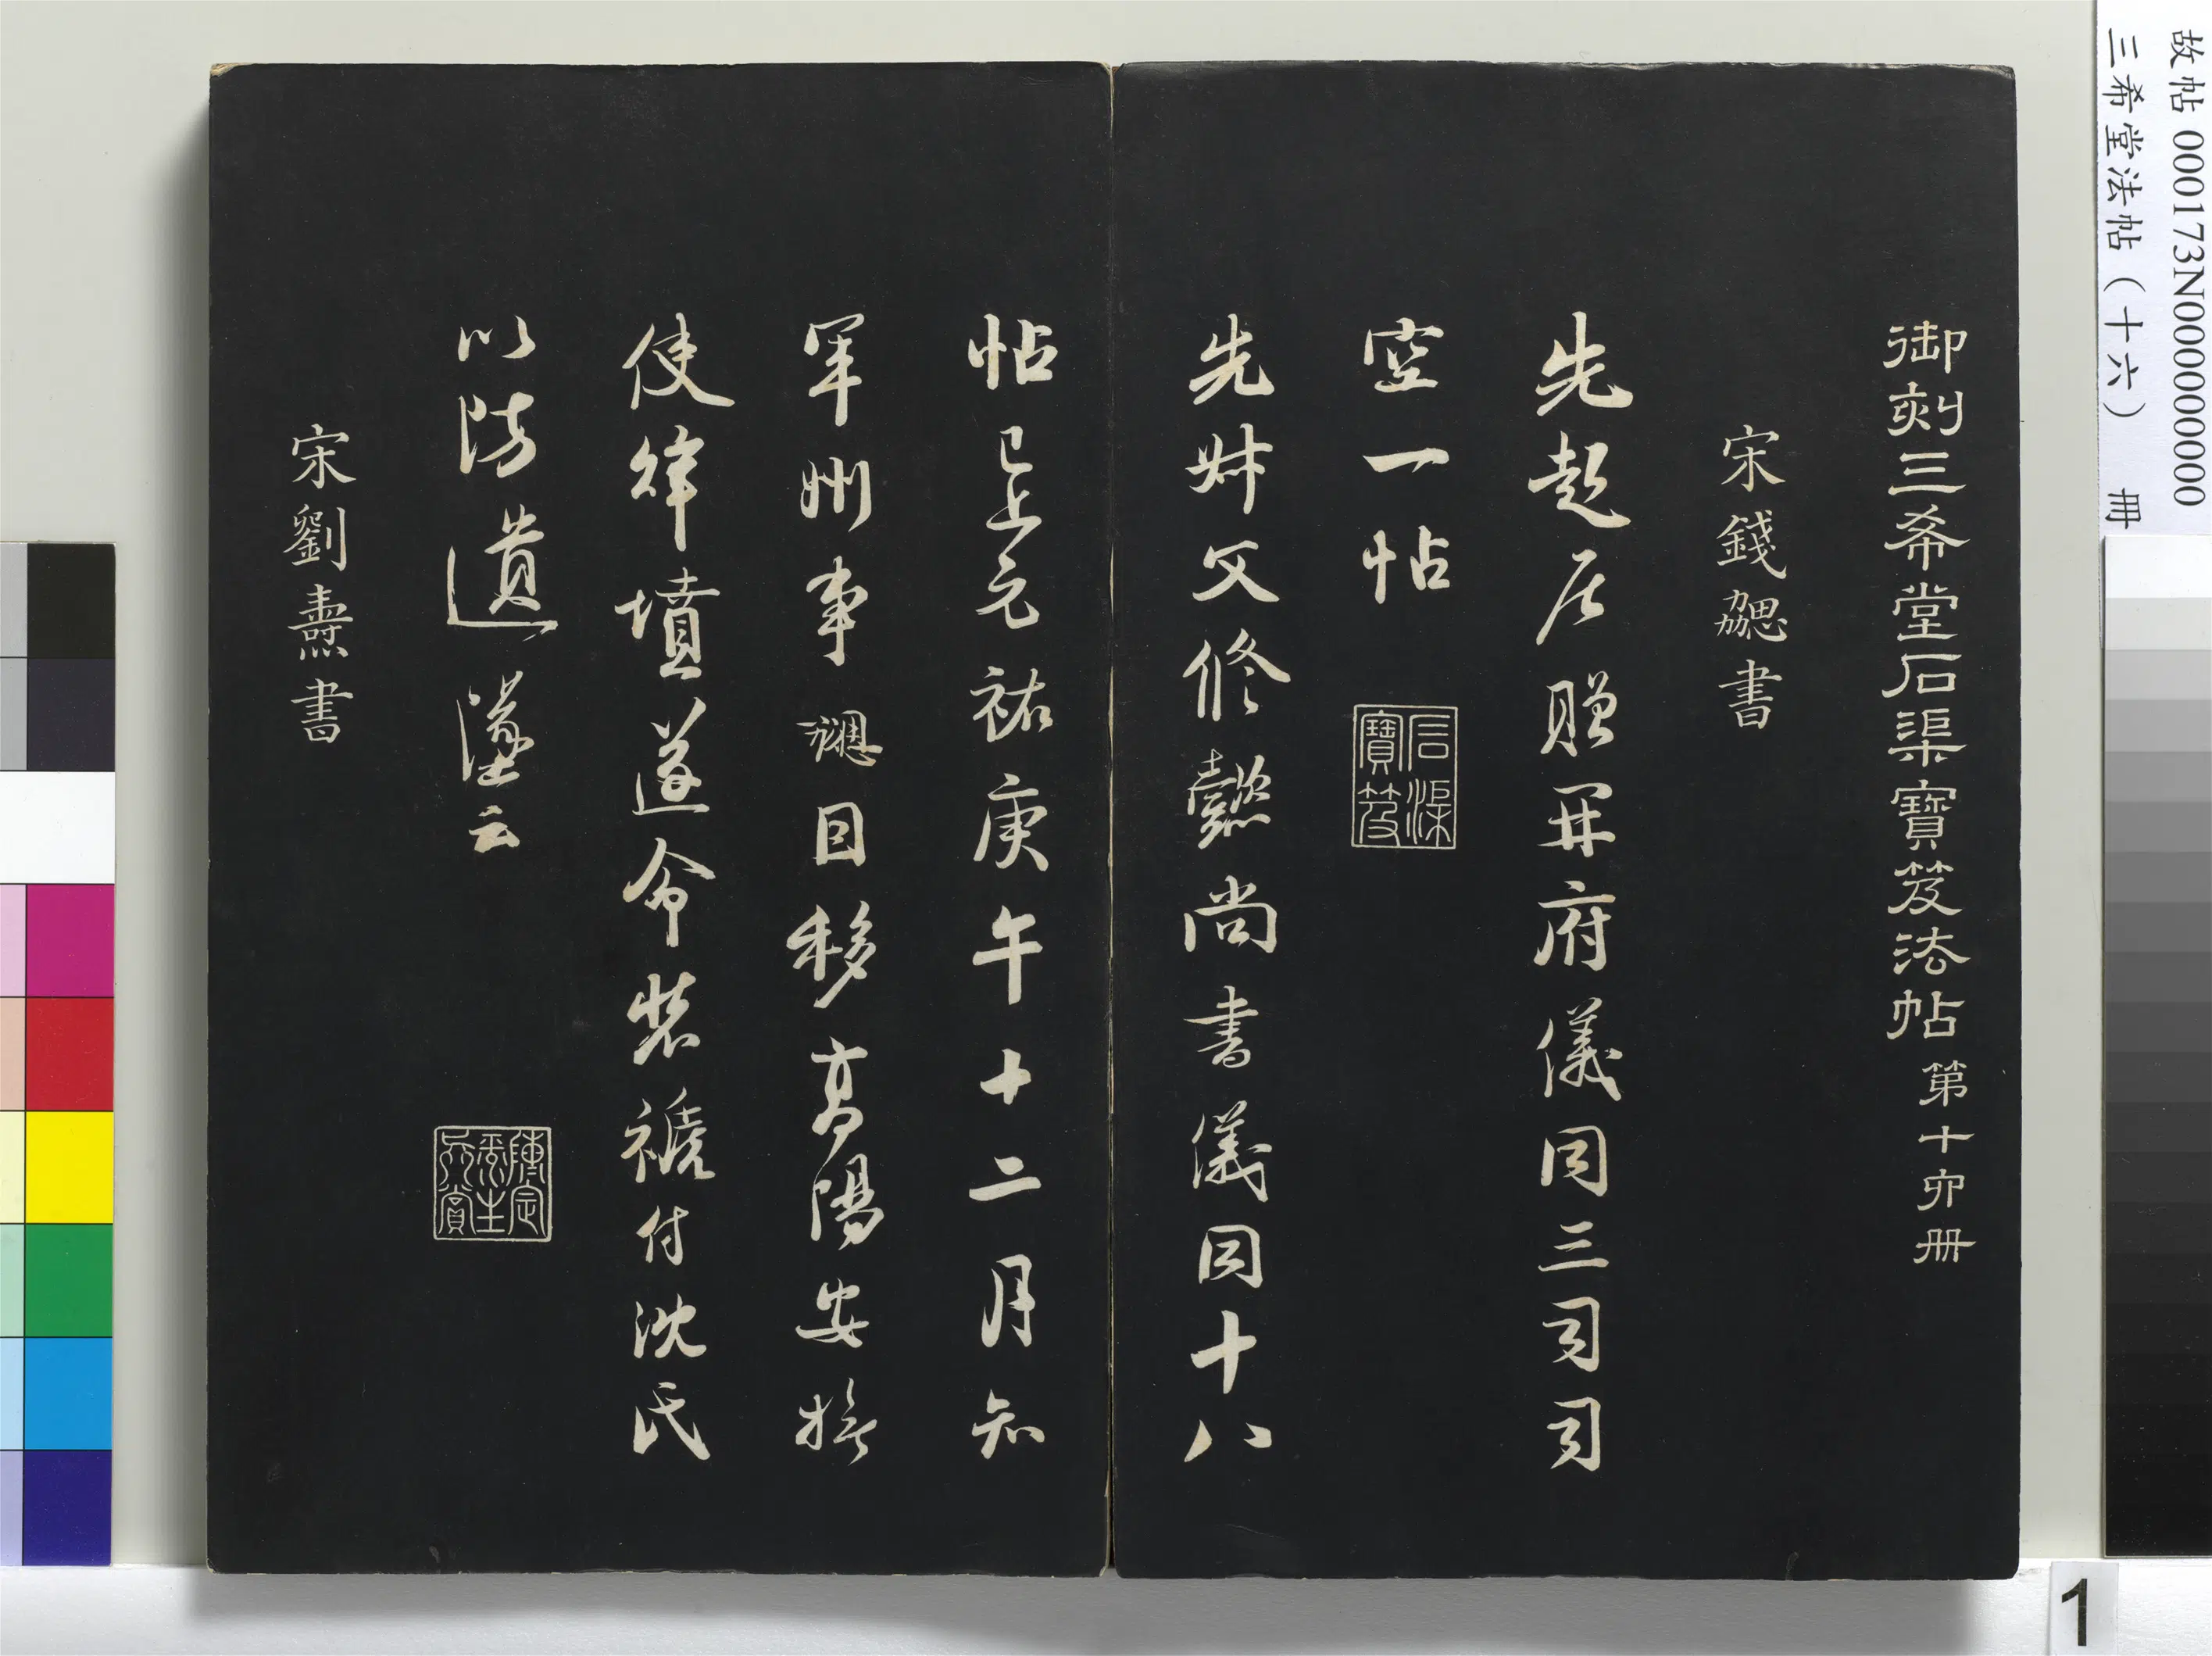 故帖 000173N000000000
三希堂法帖（十六） 冊
御刻三希堂石渠寶笈法帖 第十卯冊
宋錢勰書
先起居贈開府儀同三司司
空一帖
石渠寶笈
先妣父修懿尚書儀同十八
帖已上元祐庚午十二月知
軍州事勰因移高陽安撫
使拜墳遂命裝褫付沈氏
以防遺墜云
宋劉燾書
1